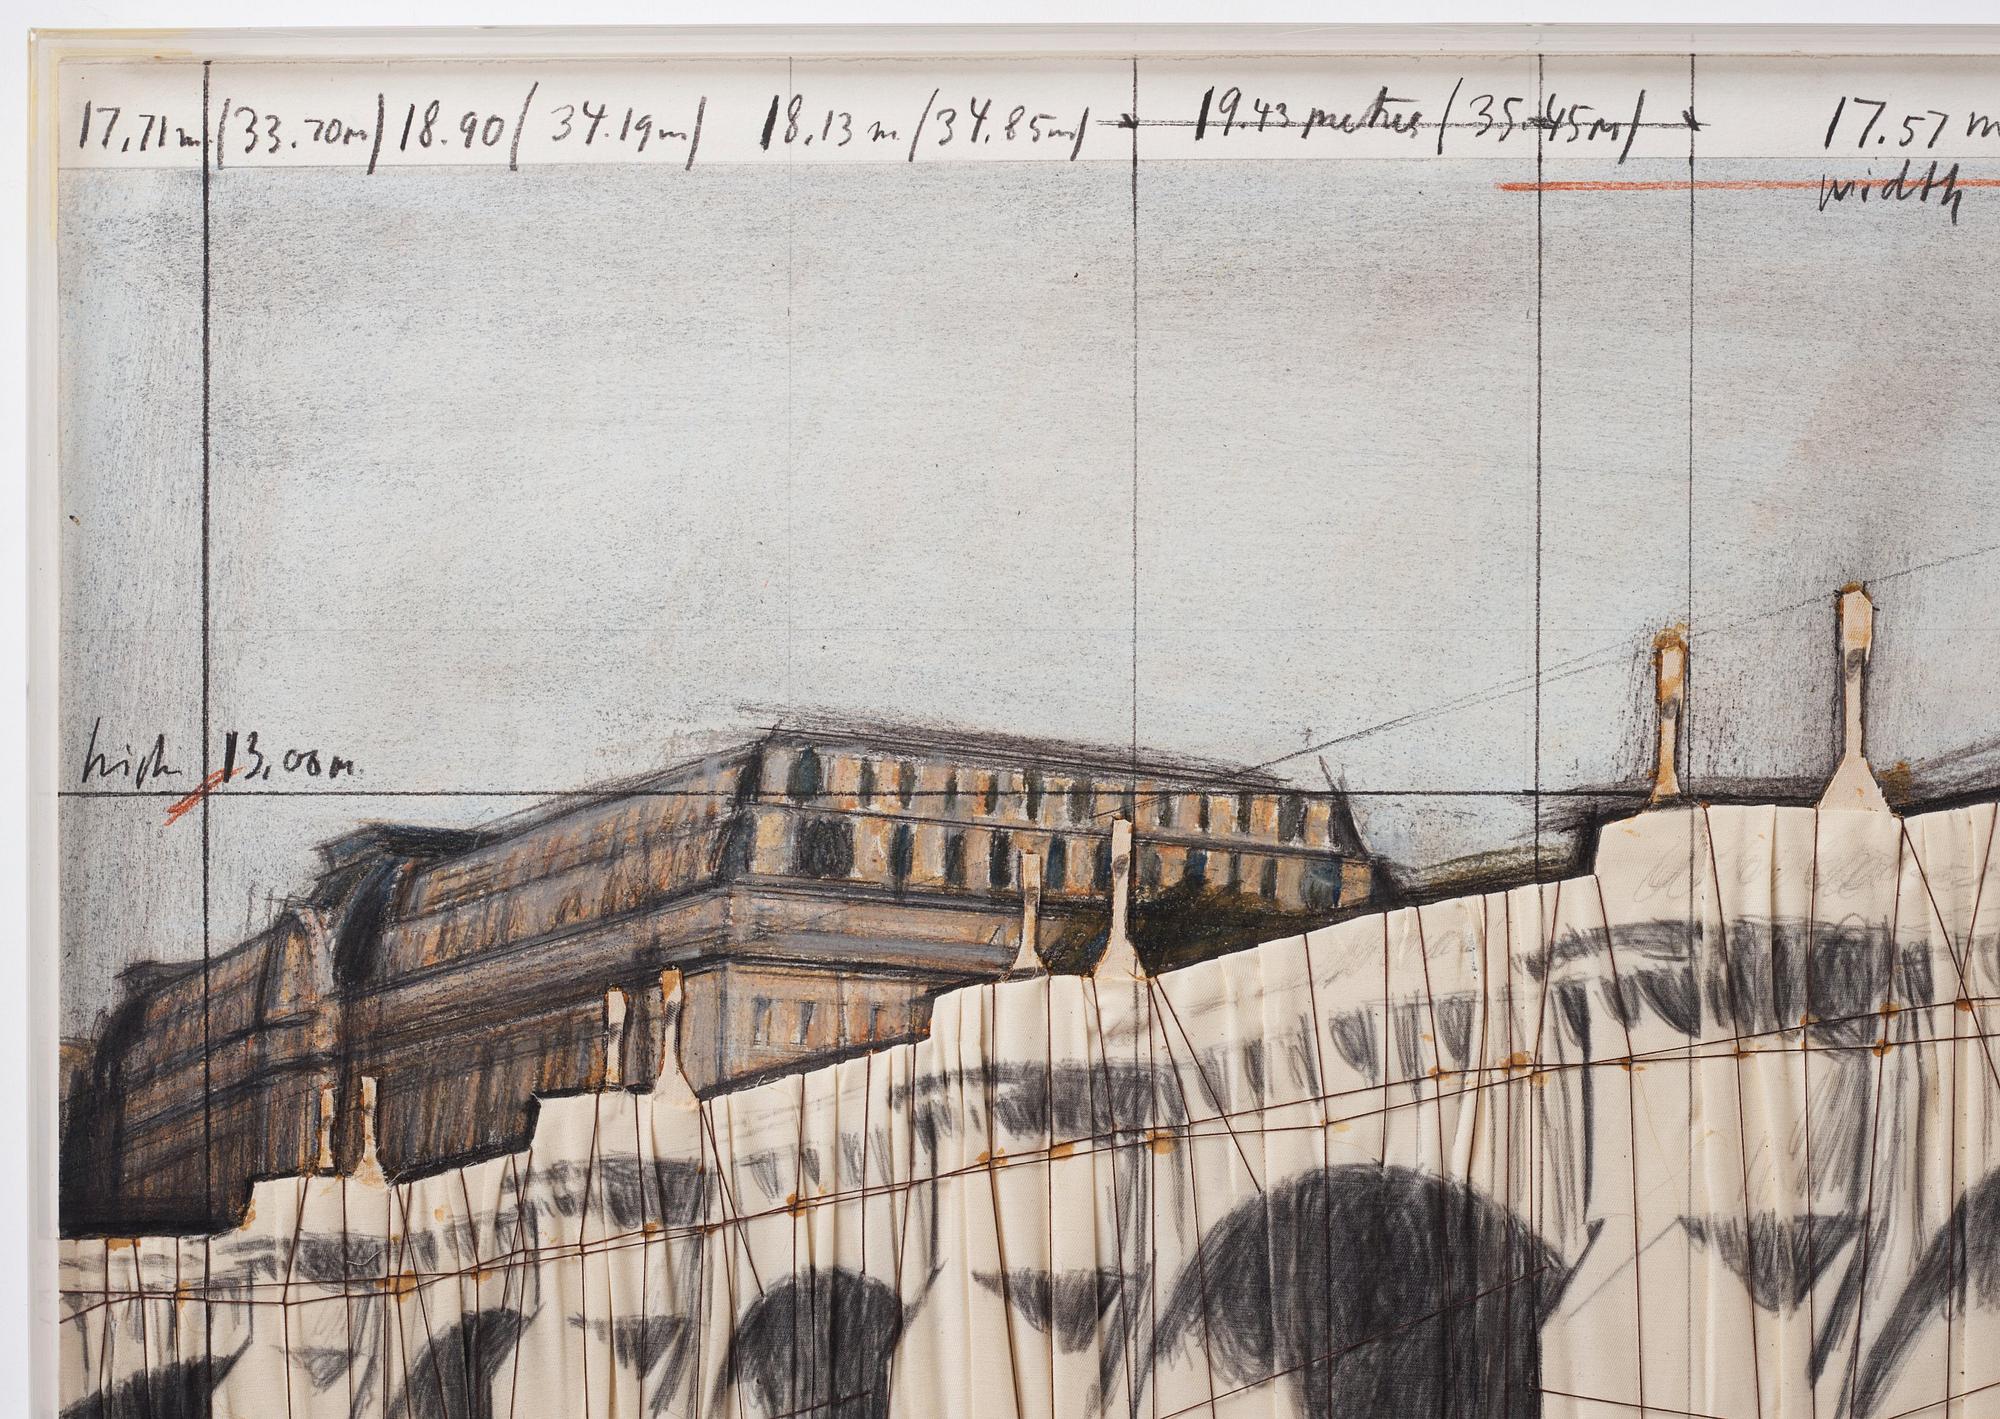 17.71m. (33.70m) 18.90 (34.19m) 18.13 m. (34.85m) 19.43 metres (35.45m) 17.57 m
width
high 13,00m.